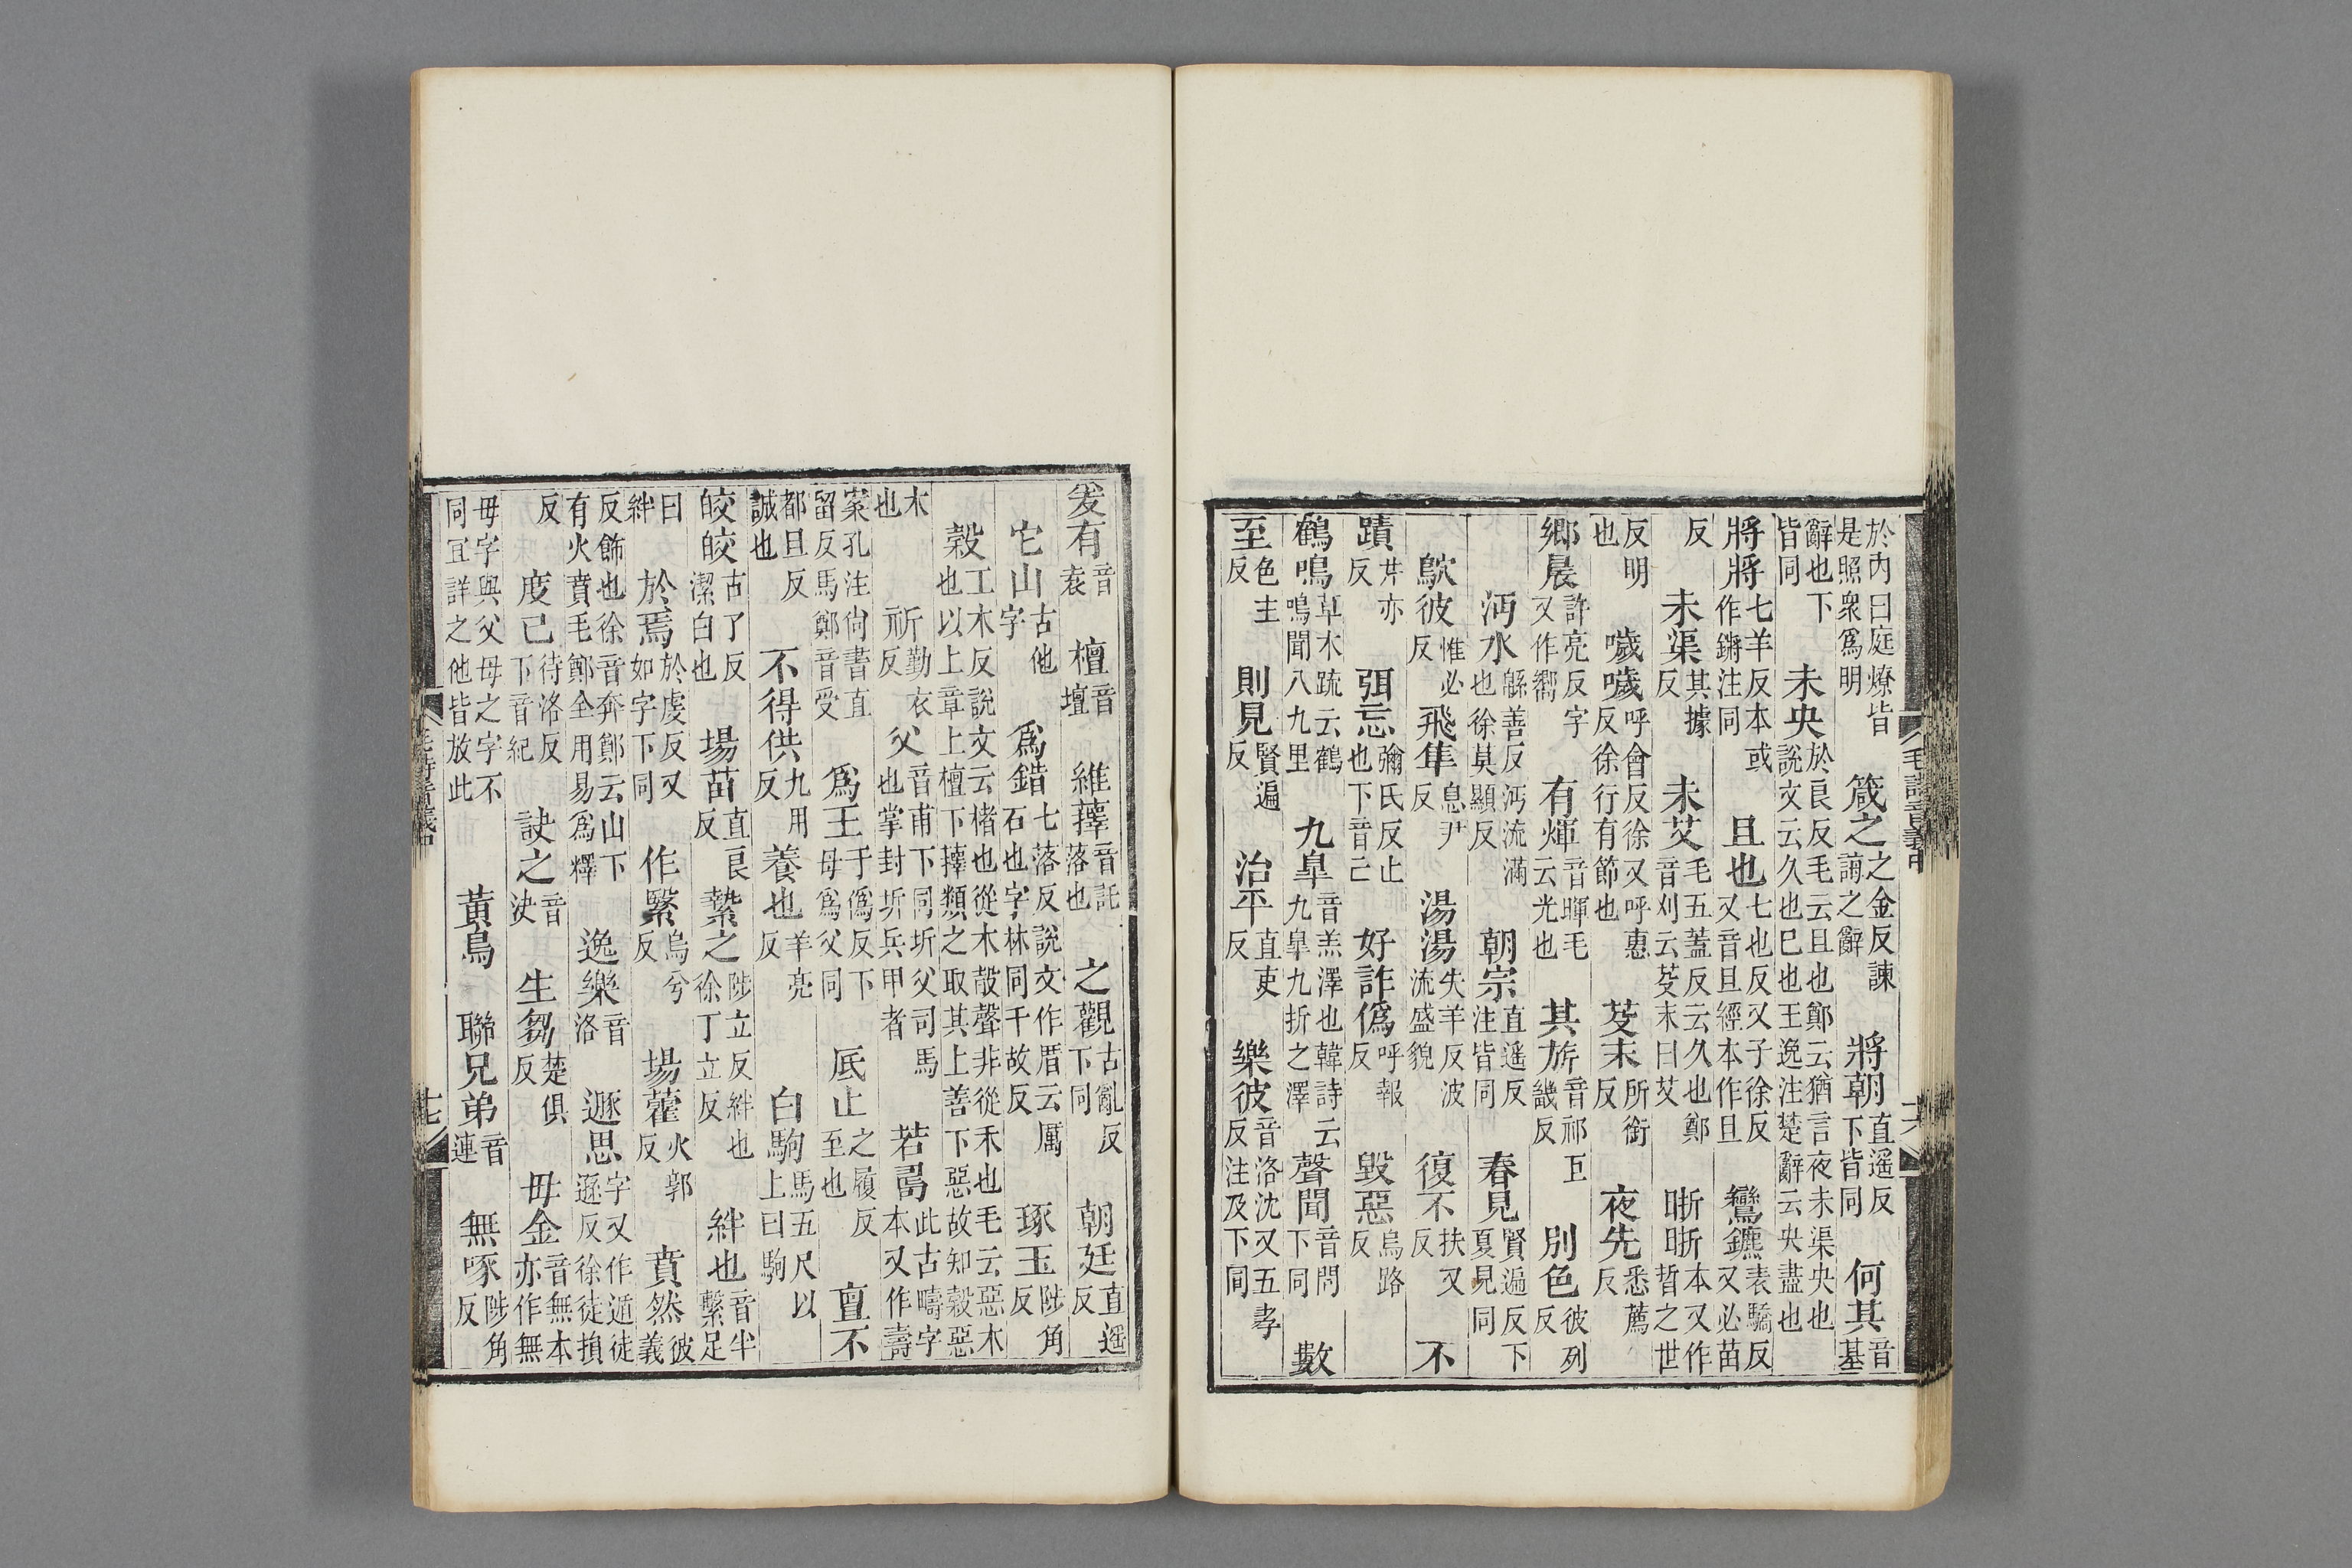 於內曰庭燎皆是照衆爲明 箴之之金反諫誨之辭 將朝直遥反下皆同 何其音基
辭也下皆同 未央於良反毛云且也鄭云猶言夜未渠央也說文云久也巳也王逸注楚辭云央盡也
將將七羊反本或作鏘注同 且也七也反又子徐反又音旦經本作旦 鸞鑣表驕反又必苗
反 未渠其據反 未艾毛五蓋反云久也鄭音刈云芟末曰艾 晣晣本又作晢之世
反明也 噦噦呼會反徐又呼惠反徐行有節也 芟末所銜反 夜先悉薦反
鄉晨許亮反字又作嚮 有煇音暉毛云光也 其旂音祁巨畿反 別色彼列反
沔水緜善反沔流滿也徐莫顯反 朝宗直遥反注皆同 春見賢遍反下夏見同
鴥彼惟必反 飛隼息尹反 湯湯失羊反波流盛貌 復不扶又反 不
蹟井亦反 弭忘彌氏反止也下音亡 好詐僞呼報反 毀惡烏路反
鶴鳴草木疏云鶴鳴聞八九里 九臯音羔澤也韓詩云九臯九折之澤 聲聞音問下同 數
至色主反 則見賢遍反 治平直吏反 樂彼音洛沈又五孝反注及下同
毛詩音義中
爰有音袁 檀音壇 維蘀音託落也 之觀古亂反下同 朝廷直遥反
它山古他字 爲錯七落反說文作厝云厲石也字林同千故反 琢玉陟角反
榖工木反說文云楮也從木㱿聲非從禾也毛云惡木也以上章上檀下蘀類之取其上善下惡故知榖惡
木也 祈勤衣反 父音甫下同圻父司馬也掌封圻兵甲者 若㗬此古疇字本又作壽
案孔注尚書直留反馬鄭音受 爲王于僞反下母爲父同 厎止之履反至也 亶不
都且反誠也 不得供九用反 養也羊亮反 白駒馬五尺以上曰駒
皎皎古了反潔白也 場苗直良反 縶之陟立反絆也徐丁立反 絆也音半繫足
曰絆 於焉於虔反又如字下同 作繄烏兮反 場藿火郭反 賁然彼義
反飾也徐音奔鄭云山下有火賁毛鄭全用易爲釋 逸樂音洛 遯思字又作遁徒遜反徐徒損
反 度已待洛反下音紀 訣之音決 生芻楚俱反 毋金音無本亦作無
毋字與父母之字不同冝詳之他皆放此 黃鳥 聯兄弟音連 無啄陟角反